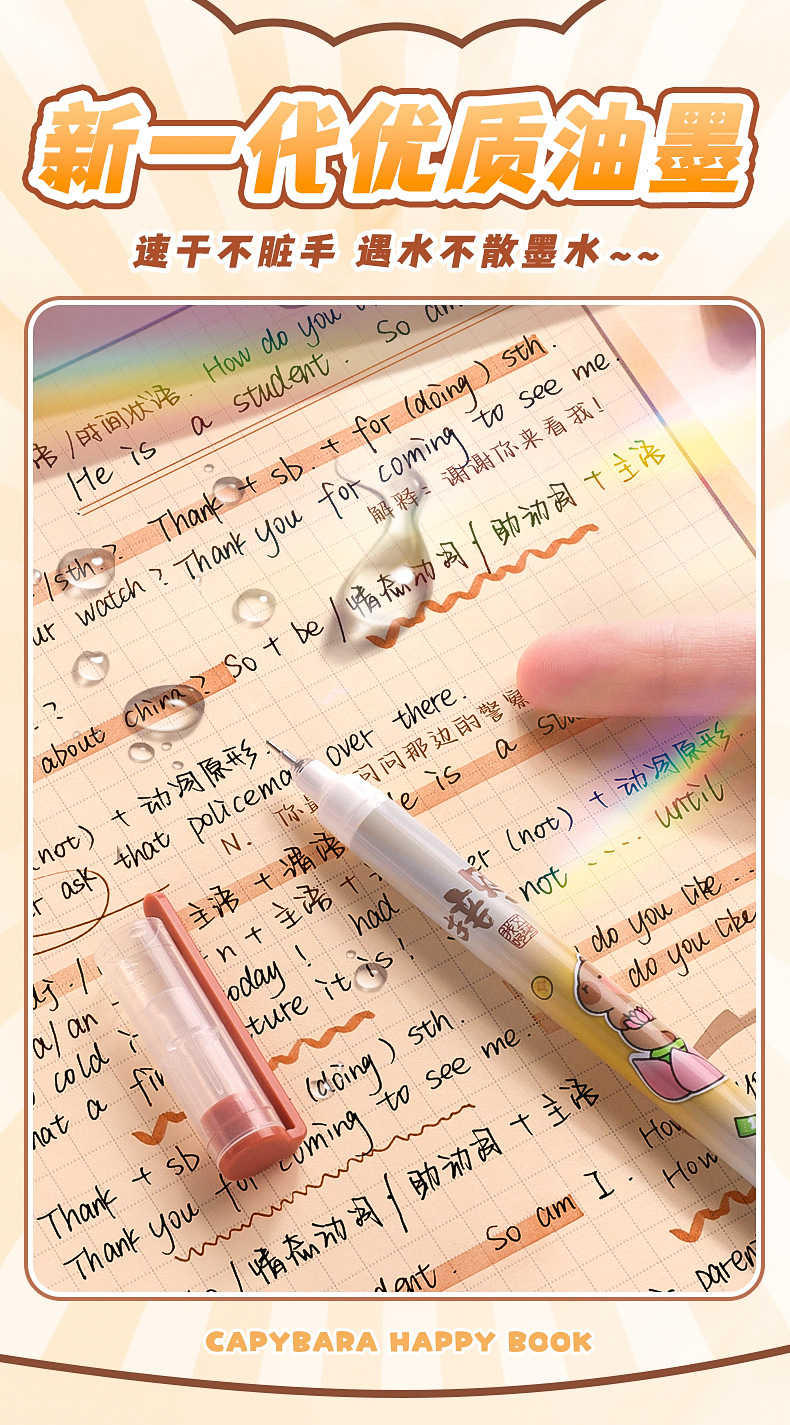 新一代优质油墨
速干不脏手 遇水不散墨水~~
How do you
So am
语/时间状语.
He is a student.
Thank + sb. + for (doing) sth.
/sth?
Thank you for coming to see me.
解释: 谢谢你来看我!
ur watch?
So + be / 情态动词 / 助动词 + 主语
?
about china?
over there.
问问那边的警察
(not) + 动词原形.
that policema
is a stu
er (not) + 动词原形.
N. 你
r ask
not .... until
主语 + 谓语
n + 主语 +
do you like ..
do you like
dj. /
today! had
a/an
ture it is!
cold i
hat a fin
(doing) sth.
Thank + sb
coming to see me.
Thank you for
How
How
情态动词 / 助动词 + 主语
So am I.
dent.
is paren
CAPYBARA HAPPY BOOK